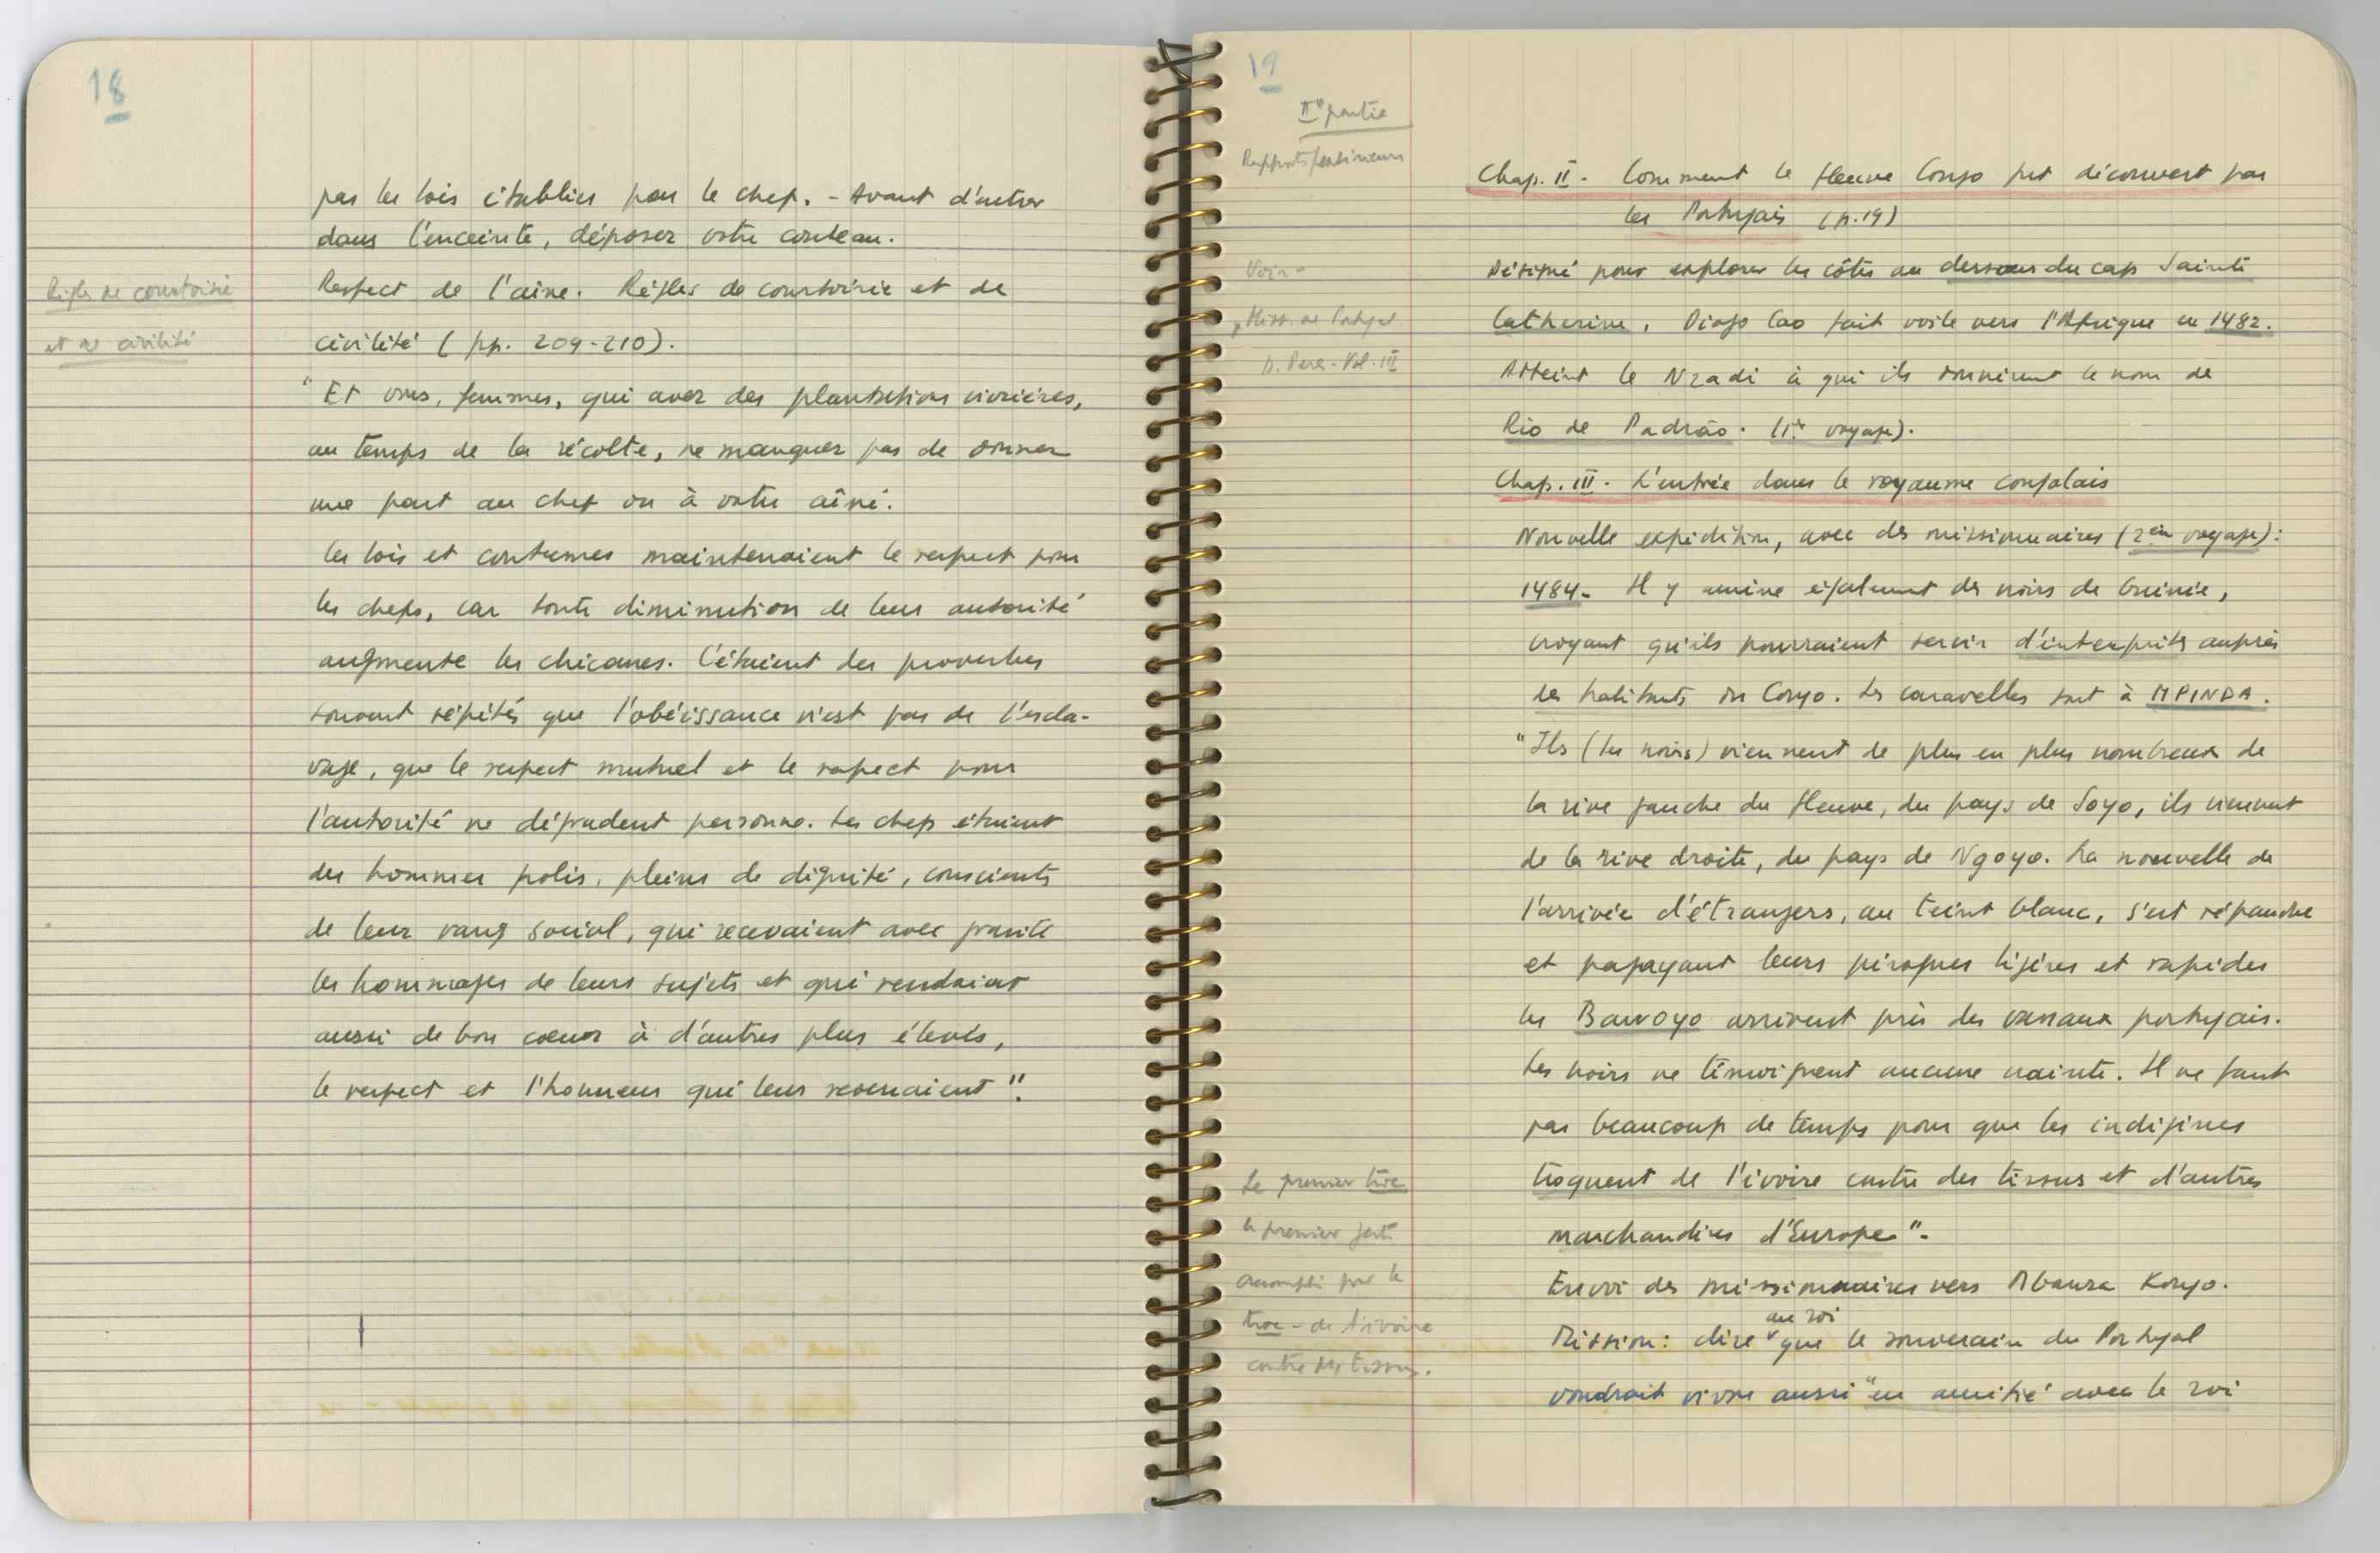 18
par les lois établies par le chef. - Avant d'entrer
dans l'enceinte, déposer votre couteau.
Respect de l'aîné. Règles de courtoisie et de
civilité (pp. 209-210).
Règles de courtoisie
et de civilité
"Et vous, femmes, qui avez des plantations vivrières,
au temps de la récolte, ne manquez pas de donner
une part au chef ou à votre aîné.
Les lois et coutumes maintenaient le respect pour
les chefs, car toute diminution de leur autorité
augmente les chicanes. C'étaient des proverbes
souvent répétés que l'obéissance n'est pas de l'escla-
vage, que le respect mutuel et le respect pour
l'autorité ne dégradent personne. Les chefs étaient
des hommes polis, pleins de dignité, conscients
de leur rang social, qui recevaient avec gravité
les hommages de leurs sujets et qui rendaient
aussi de bon cœur à d'autres plus élevés,
le respect et l'honneur qui leur revenaient".
19
IIe partie
Rapports
Chap. II - Comment le fleuve Congo fut découvert par
les Portugais (p. 19)
Désigné pour explorer les côtes au dessous du cap Sainte
Catherine, Diogo Cao fait voile vers l'Afrique en 1482.
Atteint le Nzadi à qui ils donnèrent le nom de
Rio de Padrão. (1er voyage).
Voir -
Hist. de Portugal
D. Peres - Vol. III
Chap. III - L'entrée dans le royaume congolais
Nouvelle expédition, avec des missionnaires (2em voyage):
1484. Il y amène également des noirs de Guinée,
croyant qu'ils pourraient servir d'interprètes auprès
des habitants du Congo. Les caravelles sont à MPINDA.
"Ils (les noirs) viennent de plus en plus nombreux de
la rive gauche du fleuve, du pays de Soyo, ils viennent
de la rive droite, du pays de Ngoyo. La nouvelle de
l'arrivée d'étrangers, au teint blanc, s'est répandue
et pagayant leurs pirogues légères et rapides
les Bawoyo arrivent près des vaisseaux portugais.
Les noirs ne témoignent aucune crainte. Il ne faut
pas beaucoup de temps pour que les indigènes
troquent de l'ivoire contre des tissus et d'autres
marchandises d'Europe".
Le premier troc
le premier geste
accompli par le
troc - de l'ivoire
contre des tissus.
Envoi des missionnaires vers Mbanza Kongo.
au roi
Mission: dire que le souverain du Portugal
voudrait vivre aussi "en amitié avec le roi